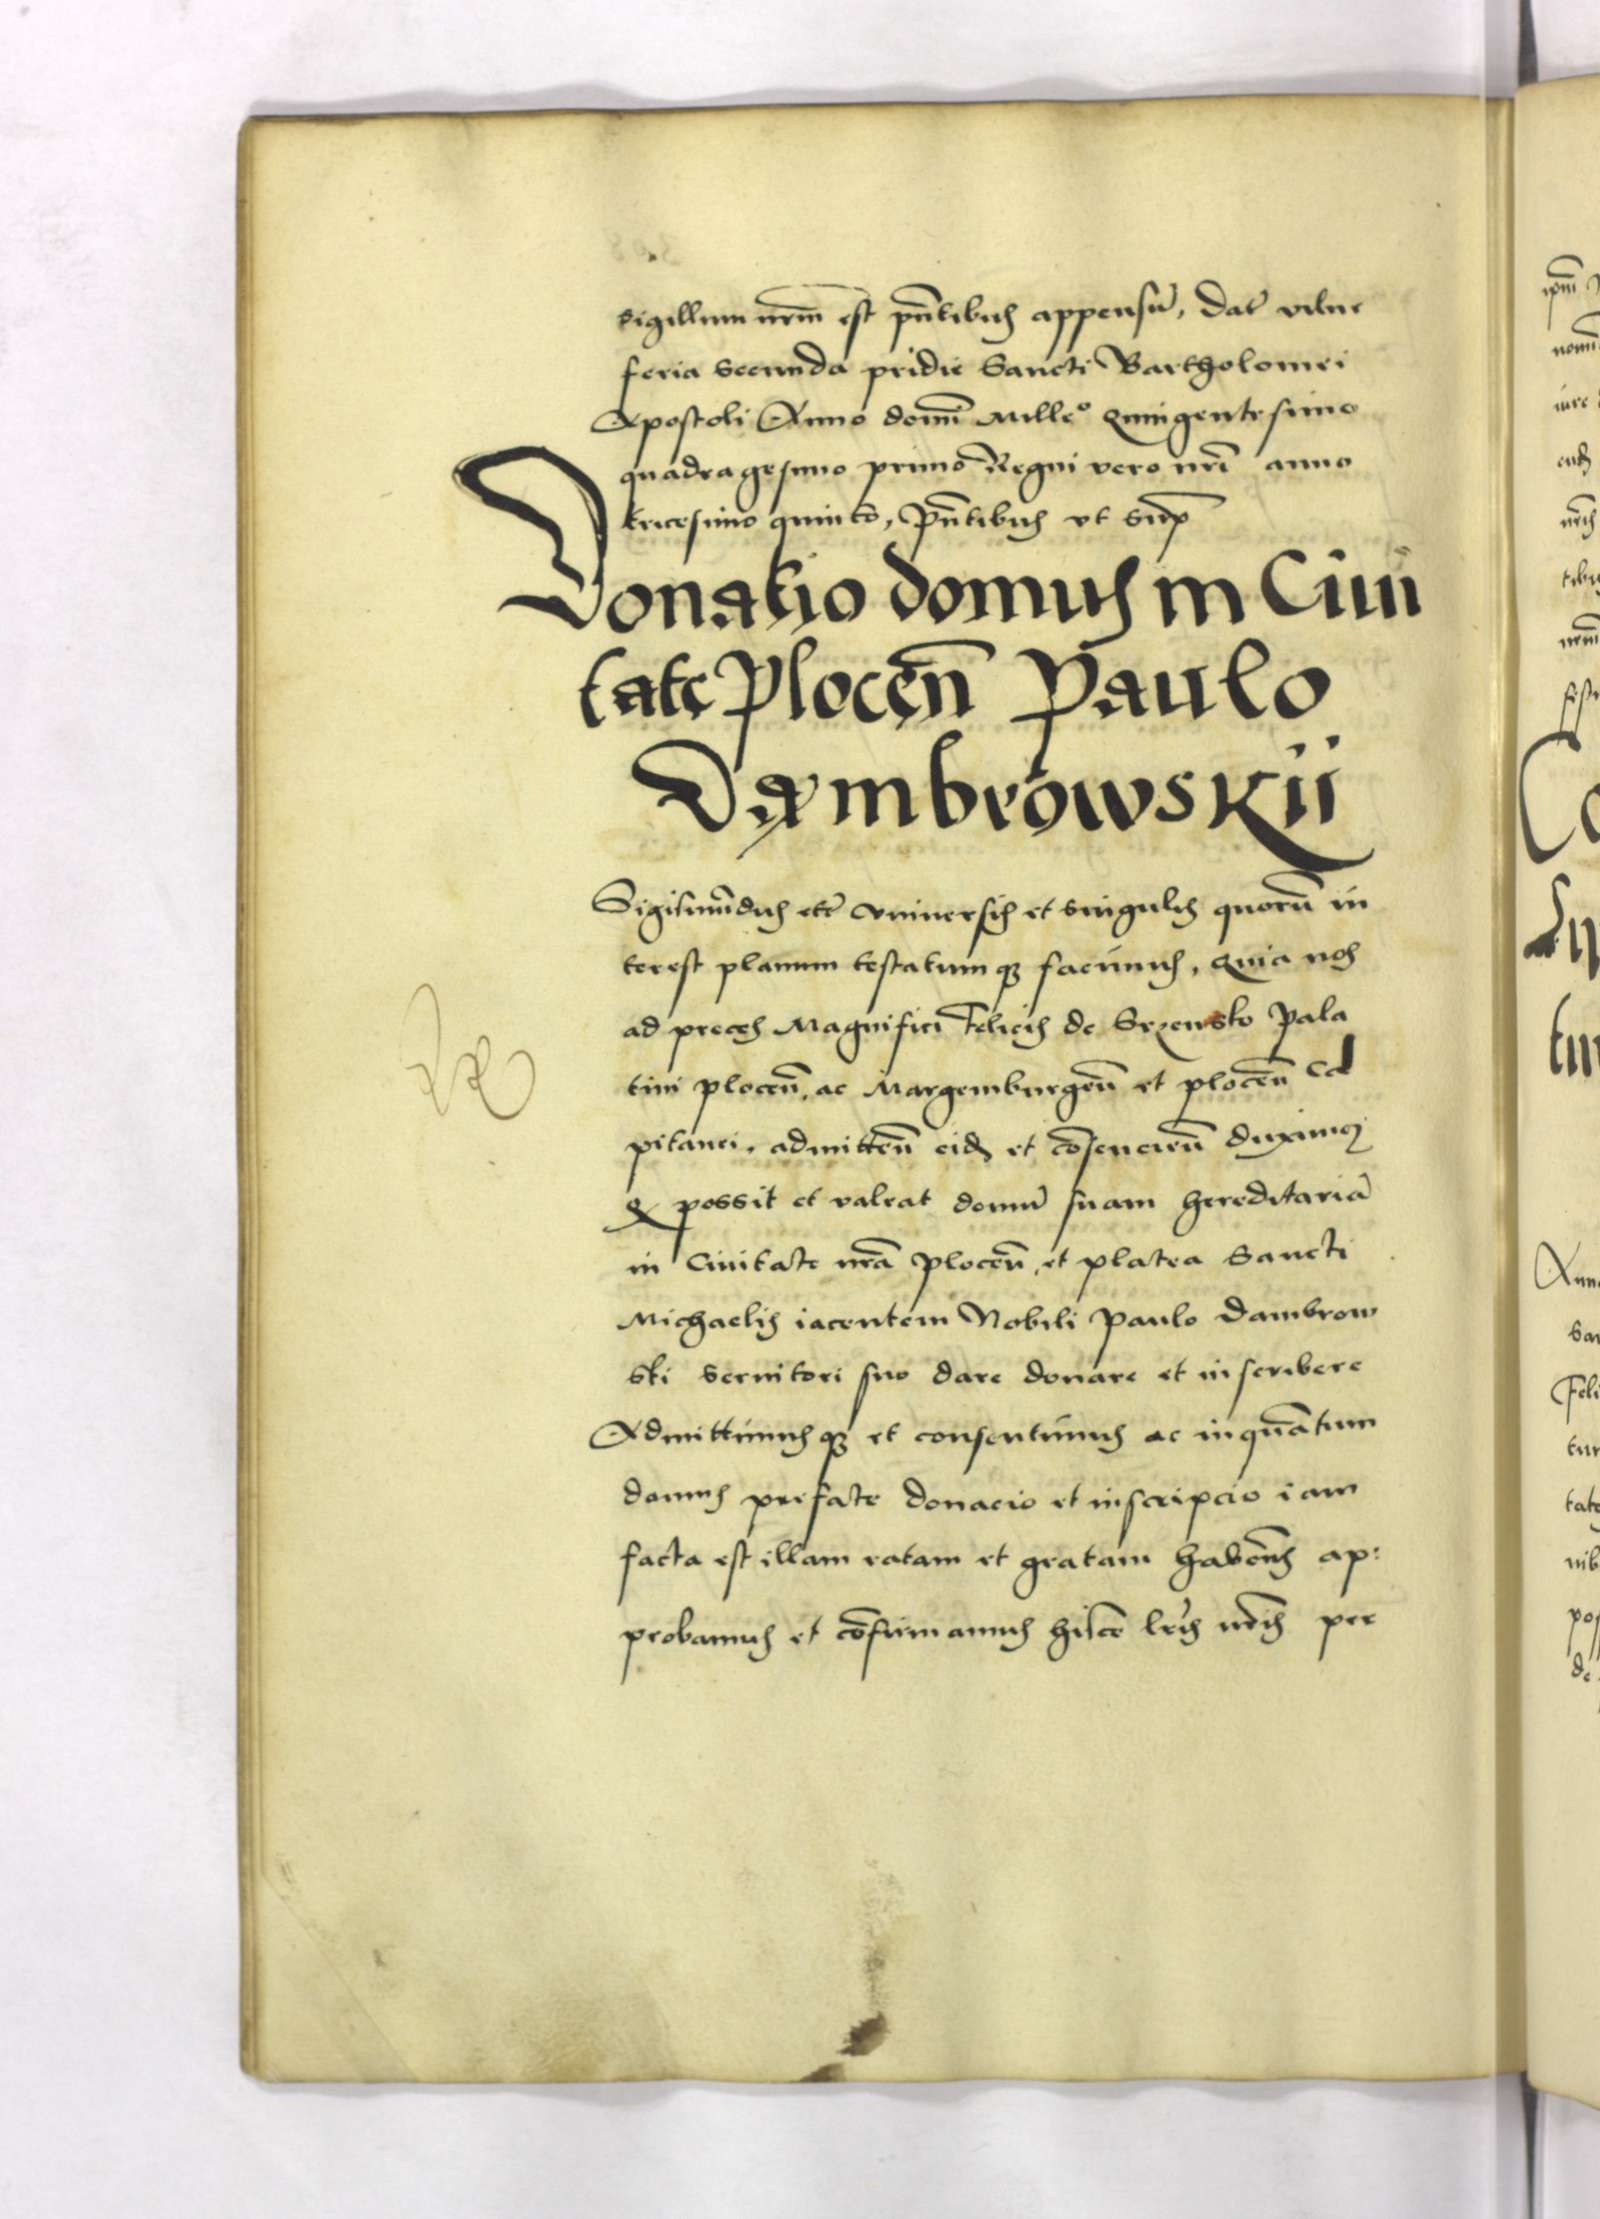 sigillum nr̄m est pn̄tibus appensū, Dat̄ vilne
feria secunda pridie Sancti Bartholomei
Apostoli Anno domī Mille° Quingentesimo
quadragesimo primo Regni vero nr̄i anno
tricesimo quinto, pn̄tibus vt sup
Donatio domus in Ciui
tate Plocēn Paulo
Dąmbrowskii
Sigismūdus etc̄ vniuersis et singulis quorū in
terest planum testatumq3 facimus, Quia nos
ad preces Magnifici Felicis de Srzensko Pala
tini plocēn, ac Margemburgēn et plocēn Ca
pitanei, admittēn eidē et cōsencien̄ duximus
Q possit et valeat domū suam hereditariā
in Ciuitate nrā Plocēn, et platea Sancti
Michaelis iacentem Nobili Paulo Dambrow
ski seruitori suo dare donare et inscribere
Admittimusq3 et consentimus ac inquātum
domus prefate donacio et inscripcio iam
facta est illam ratam et gratam habēns ap:
probamus et cōfirmamus hisce lr̄is nr̄is per